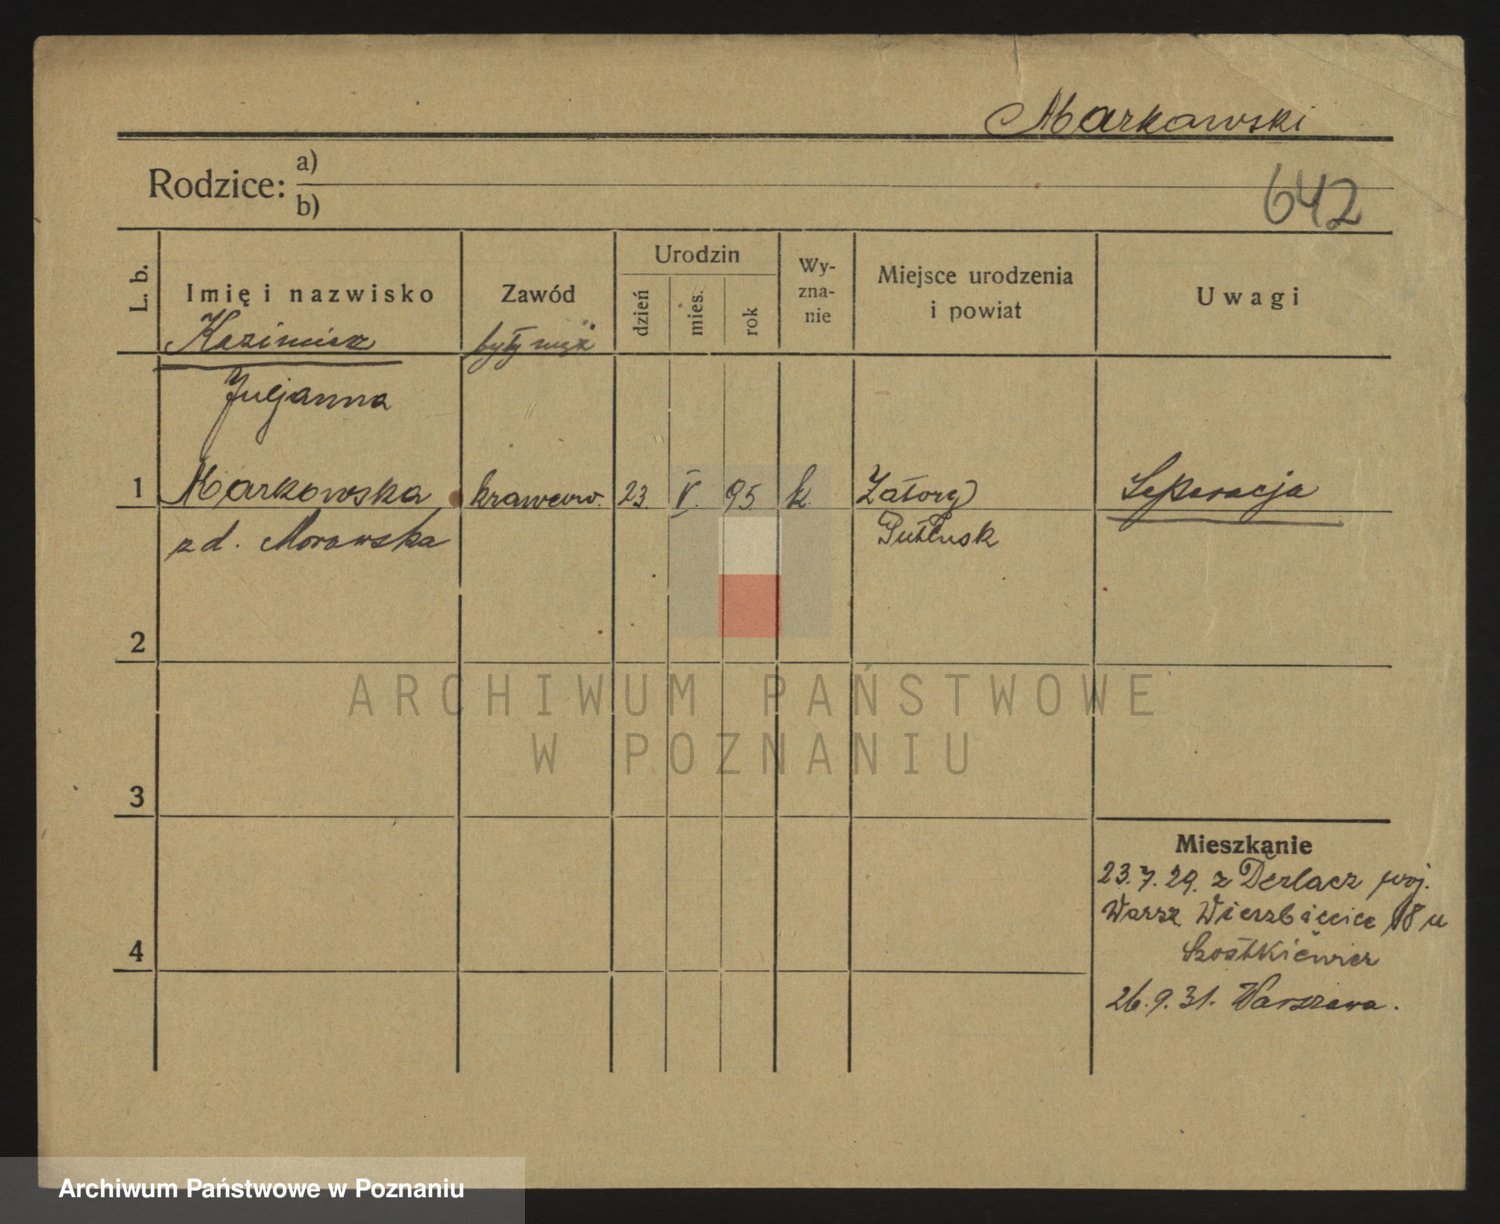 Markowski
Rodzice: a)
b)
642
L. b.
Imię i nazwisko
Zawód
Urodzin
dzień
mies.
rok
Wy-
zna-
nie
Miejsce urodzenia
i powiat
Uwagi
Kazimierz były mąż
Juljanna
1 Markowska krawcow. 23. V. 95 k. Zatory Seperacja
zd. Morawska Pułtusk
2
3
4
Mieszkanie
23.7.29. z Derlacz woj.
Warsz Wierzbięcice 18 u
Szostkiewicz
26.9.31. Warszawa.
ARCHIWUM PAŃSTWOWE
W POZNANIU
Archiwum Państwowe w Poznaniu